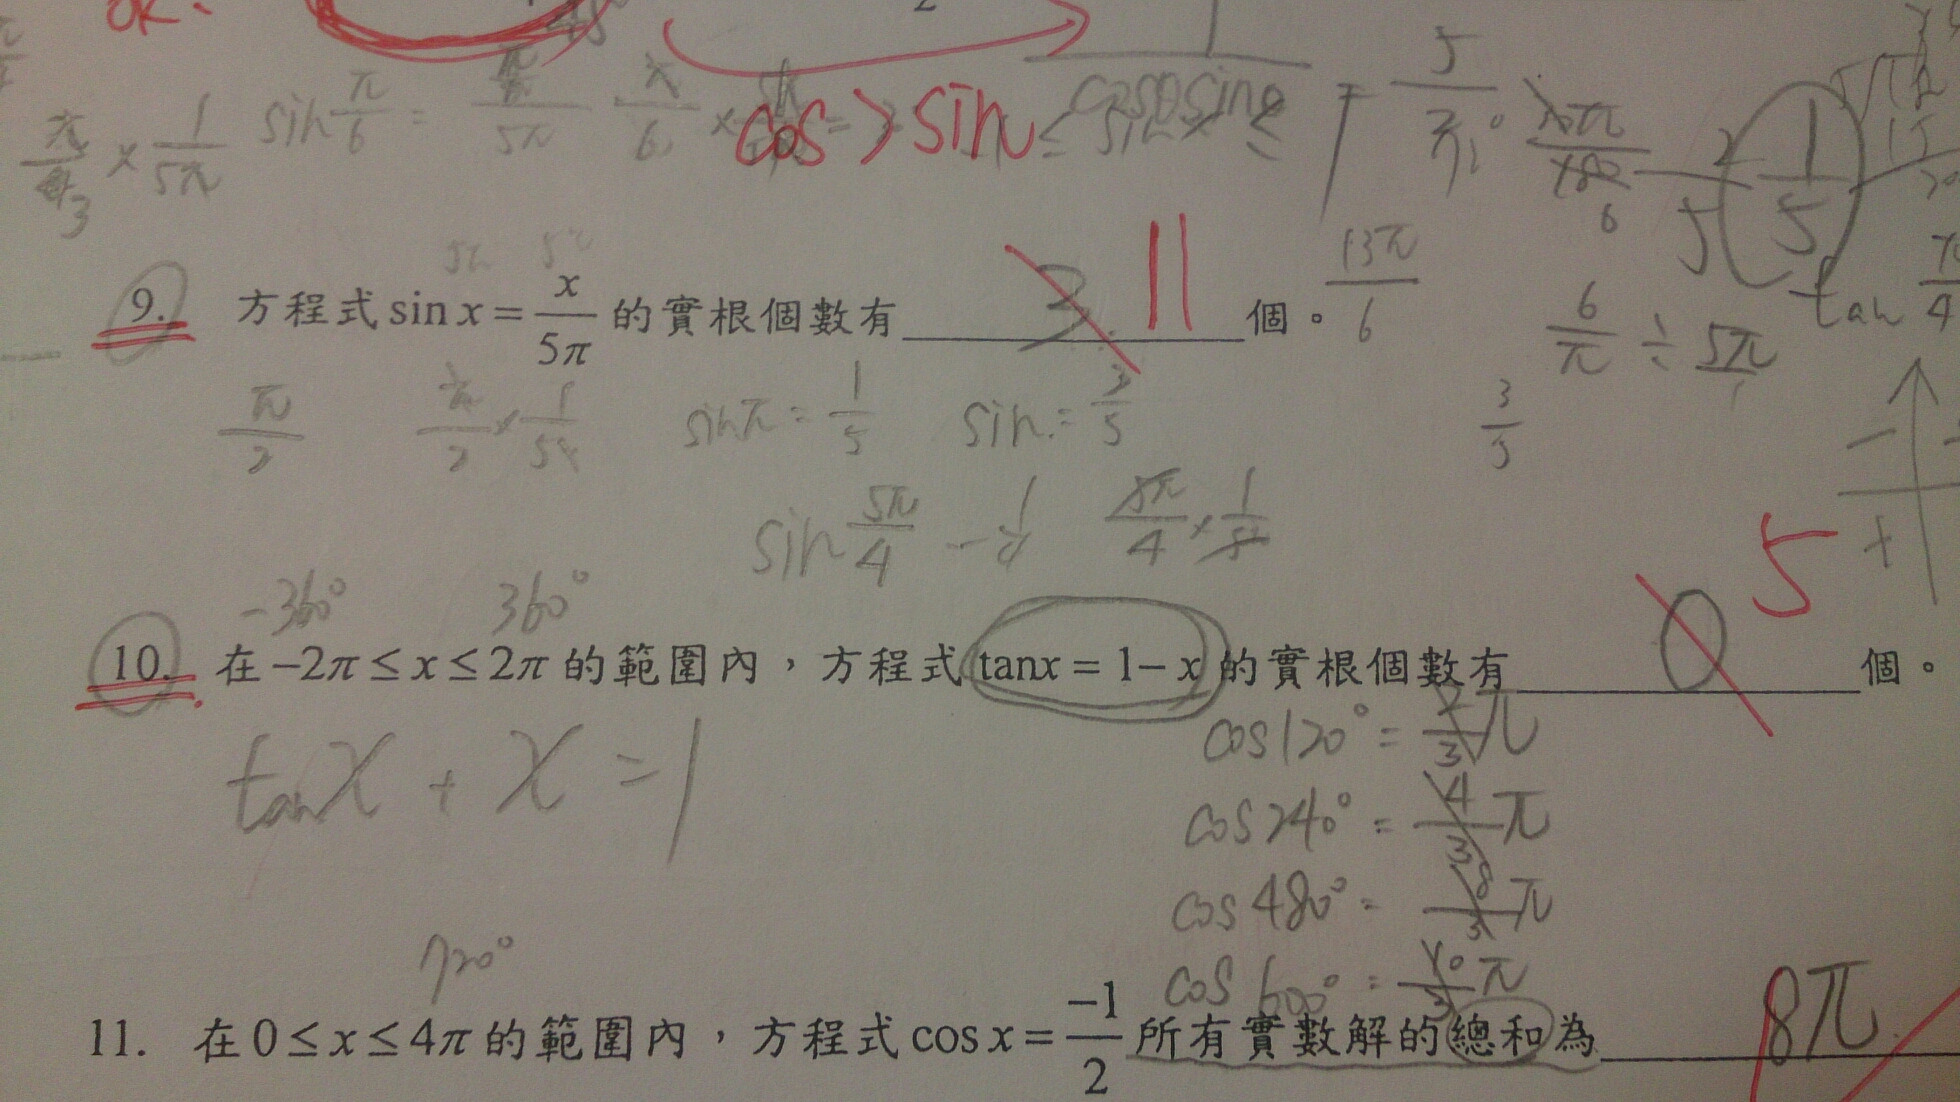 OK.
cos > sin
π/3 × 1/5π
sin π/6 =
9. 方程式 sin x = x/5π 的實根個數有 3 11 個。
13π/6
6/π ÷ 5π
tan π/4
π/2
sin π = 1/5
sin = 3/5
3/5
sin 5π/4
5π/4 ×
-360° 360°
5
10. 在 −2π ≤ x ≤ 2π 的範圍內,方程式 tanx = 1− x 的實根個數有 0 個。
tan x + x = 1
cos 120° = 2/3 π
cos 240° = 4/3 π
cos 480° = 8/3 π
cos 600° = 10/3 π
720°
11. 在 0 ≤ x ≤ 4π 的範圍內,方程式 cos x = −1/2 所有實數解的總和為 8π